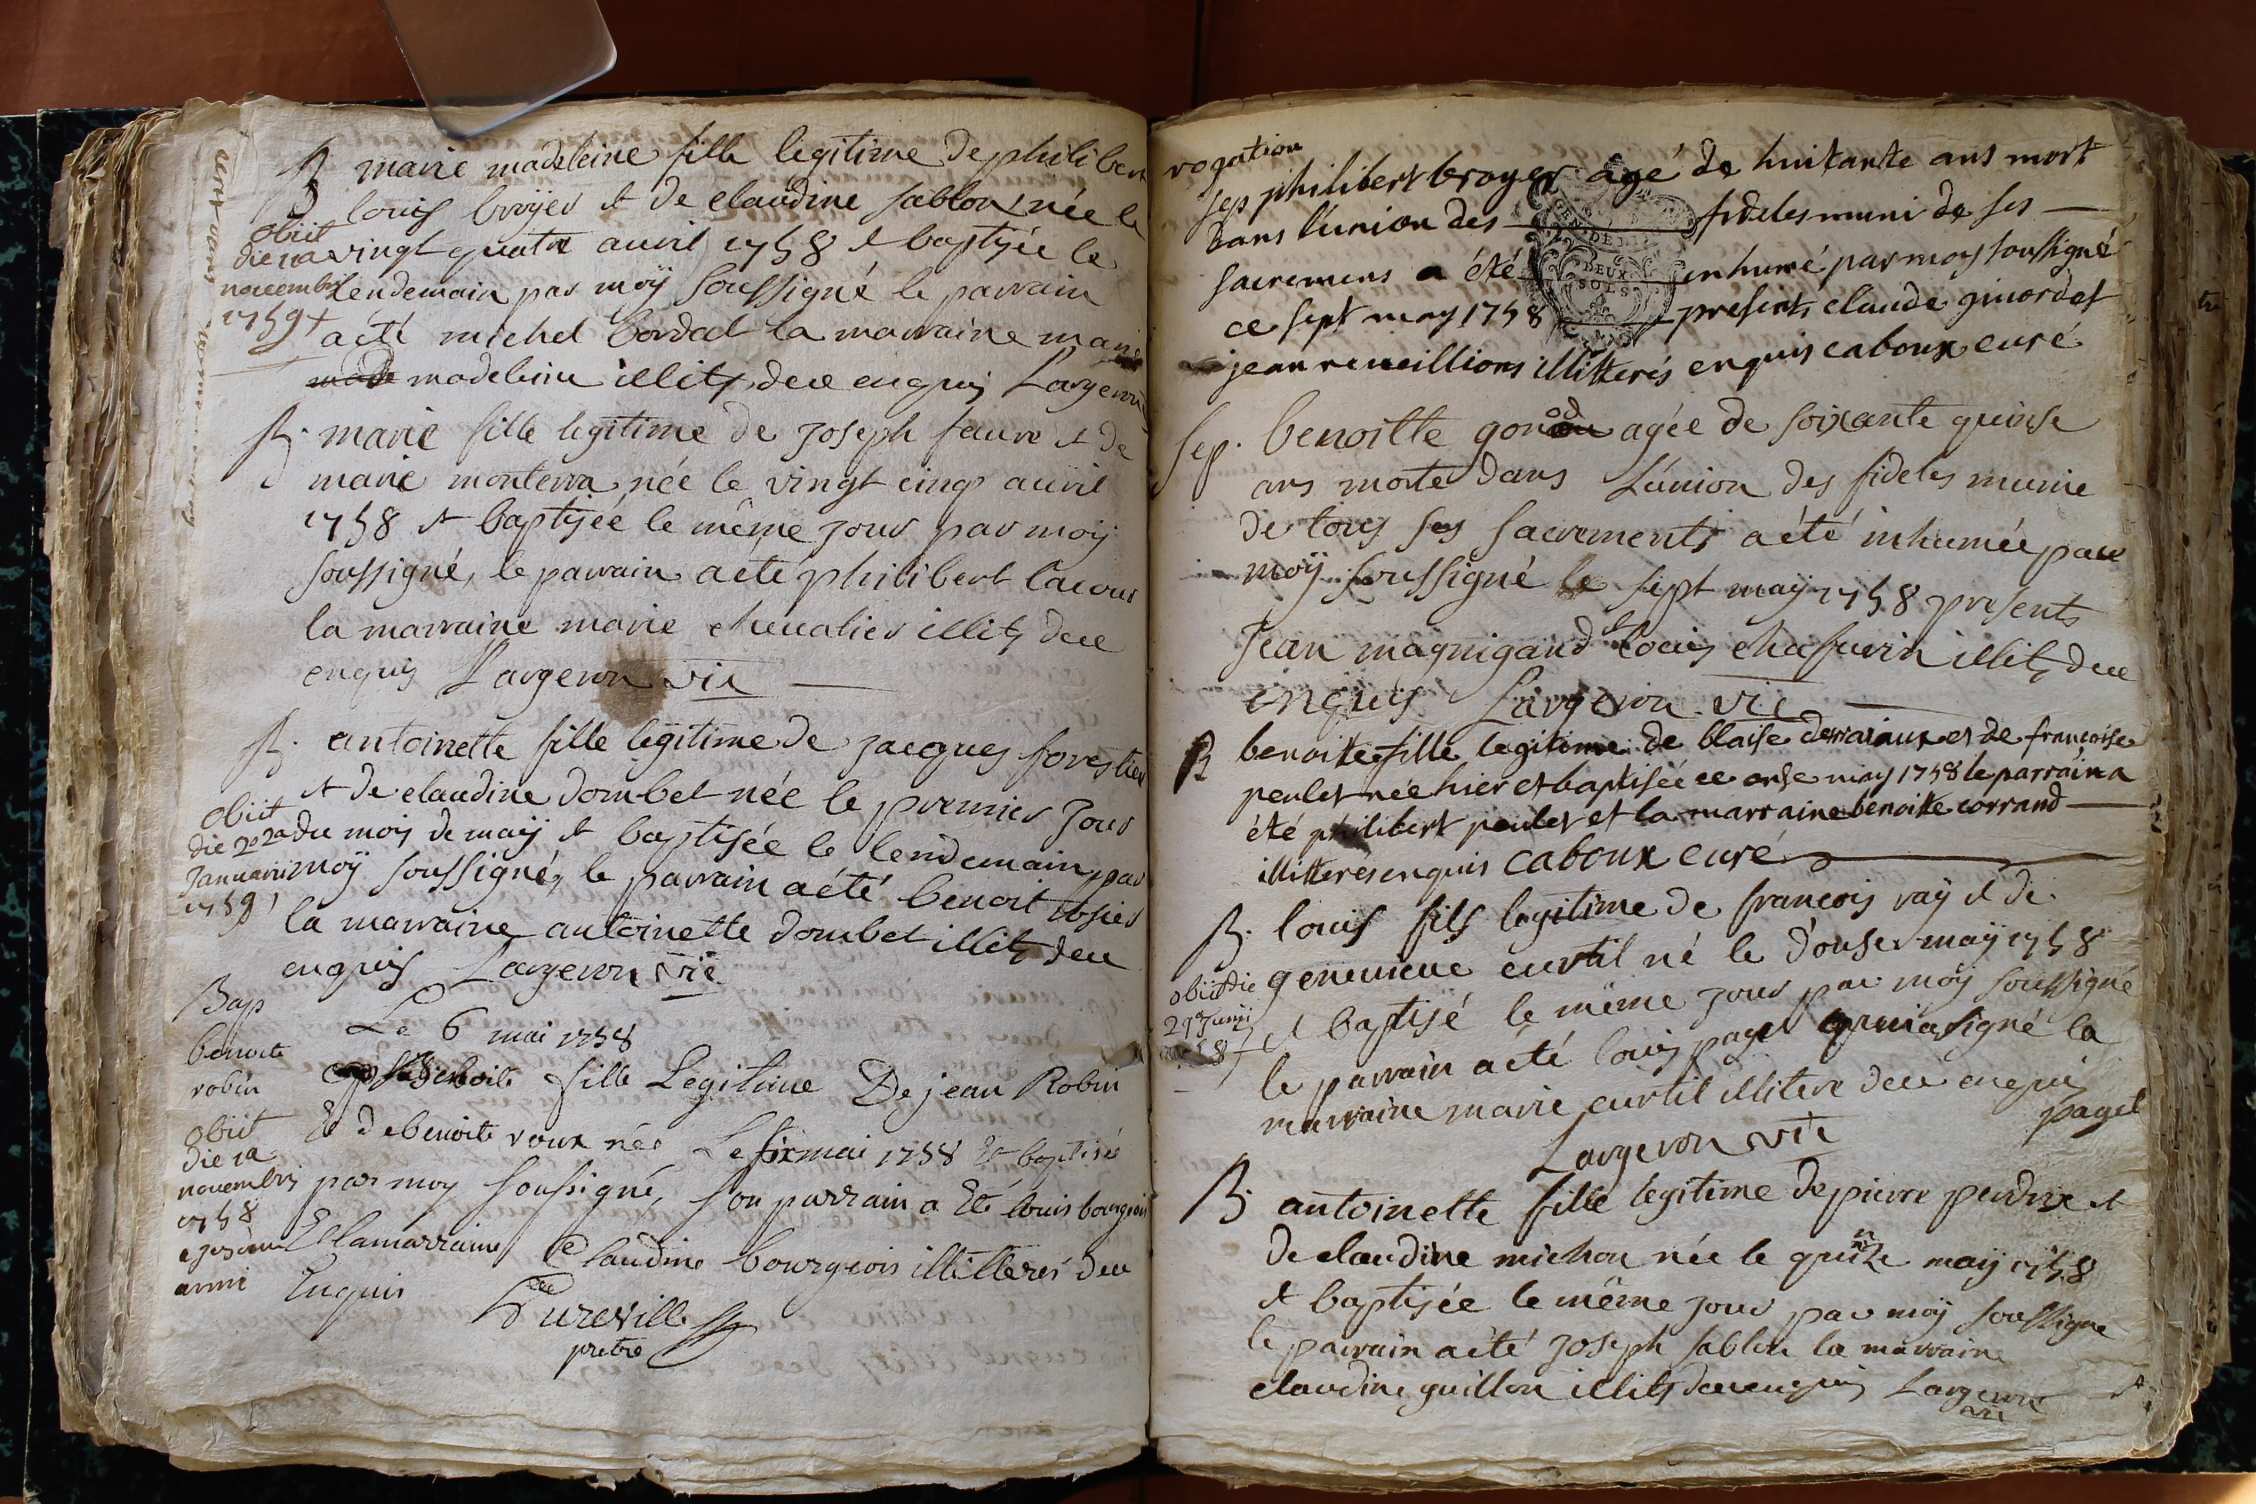 B marie madeleine fille legitime de philibert
louis broyer et de claudine sablon née le
obiit
die 11a vingt quatre avril 1758 et baptisée le
novembris lendemain par moÿ soussigné le parrain
1759 + a été michel bordat la marraine marie
madeleine illits dece enquis Largeron
B. marie fille legitime de joseph faure et de
marie monterra née le vingt cinq avril
1758 et baptisée le même jour par moÿ
soussigné, le parrain a été philibert lacour
la marraine marie chevalier illits dece
enquis Largeron vic
B. antoinette fille legitime de jacques forestier
et de claudine dombet née le premier jour
obiit
die 22a du mois de maÿ et baptisée le lendemain par
januarii moÿ soussigné, le parrain a été benoit
1759 la marraine antoinette dombet illits dece
enquis Largeron vic
Bap
benoite
robin
Le 6 mai 1758
benoite fille Legitime De jean Robin
obiit
die 1a
novembris
1758
ejusdem
anni
Et de benoite roux née Le six mai 1758 Et baptisée
par moy soussigné, son parrain a Eté louis bourgeois
Et la marraine Claudine bourgeois illitteres dece
Enquis Dureville
pretre
rogation
sep philibert broyer âgé de huitante ans mort
dans l'union des fideles muni de ses
DEUX
SOLS
sacremens a été inhumé par moy soussigné
ce sept may 1758 presents claude ginord et
jean reveillions illitterés enquis caboux curé
sep. benoitte gonod agée de soixante quinse
ans morte dans L'union des fideles munie
de tous ses sacrements a été inhumée par
moÿ soussigné le sept maÿ 1758 presents
Jean magnigand et louis chafurin illits dece
enquis Largeron vic
B benoitte fille legitime de blaise derraiaux et de francoise
peulet née hier et baptisée ce onse may 1758 le parrain a
été philibert peulet et la marraine benoitte corrand
illitterés enquis caboux curé
B. louis fils legitime de francois raÿ et de
obiit die genevieve curtil né le douse maÿ 1758
29a junii et baptisé le même jour par moÿ soussigné
le parrain a été louis paget qui a signé la
marraine marie curtil illitere dece enquis
paget
Largeron vic
B. antoinette fille legitime de pierre perdrix et
de claudine michon née le quinze maÿ 1758
et baptisée le même jour par moÿ soussigné
le parrain a été joseph sablon la marraine
claudine guillon illits dece enquis Largeron
vic